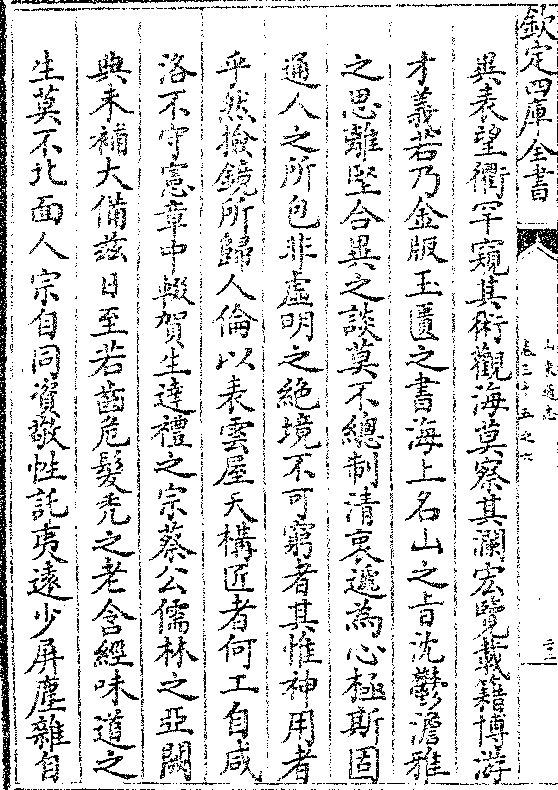 欽定四庫全書
山東通志
卷三十五之六
異表望衢罕窺其術觀海莫察其瀾宏覽載籍博游
才義若乃金版玉匱之書海上名山之旨沈鬱澹雅
之思離堅合異之談莫不總制清衷遞為心極斯固
通人之所包非虛明之絶境不可窮者其惟神用者
乎然撿鏡所歸人倫以表雲屋天構匠者何工自咸
洛不守憲章中輟賀生達禮之宗蔡公儒林之亞闕
典未補大備茲日至若齒危髮秃之老含經味道之
生莫不北面人宗自同資敬性託夷遠少屏塵雜自